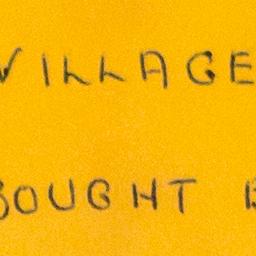 VILLAGE
BOUGHT